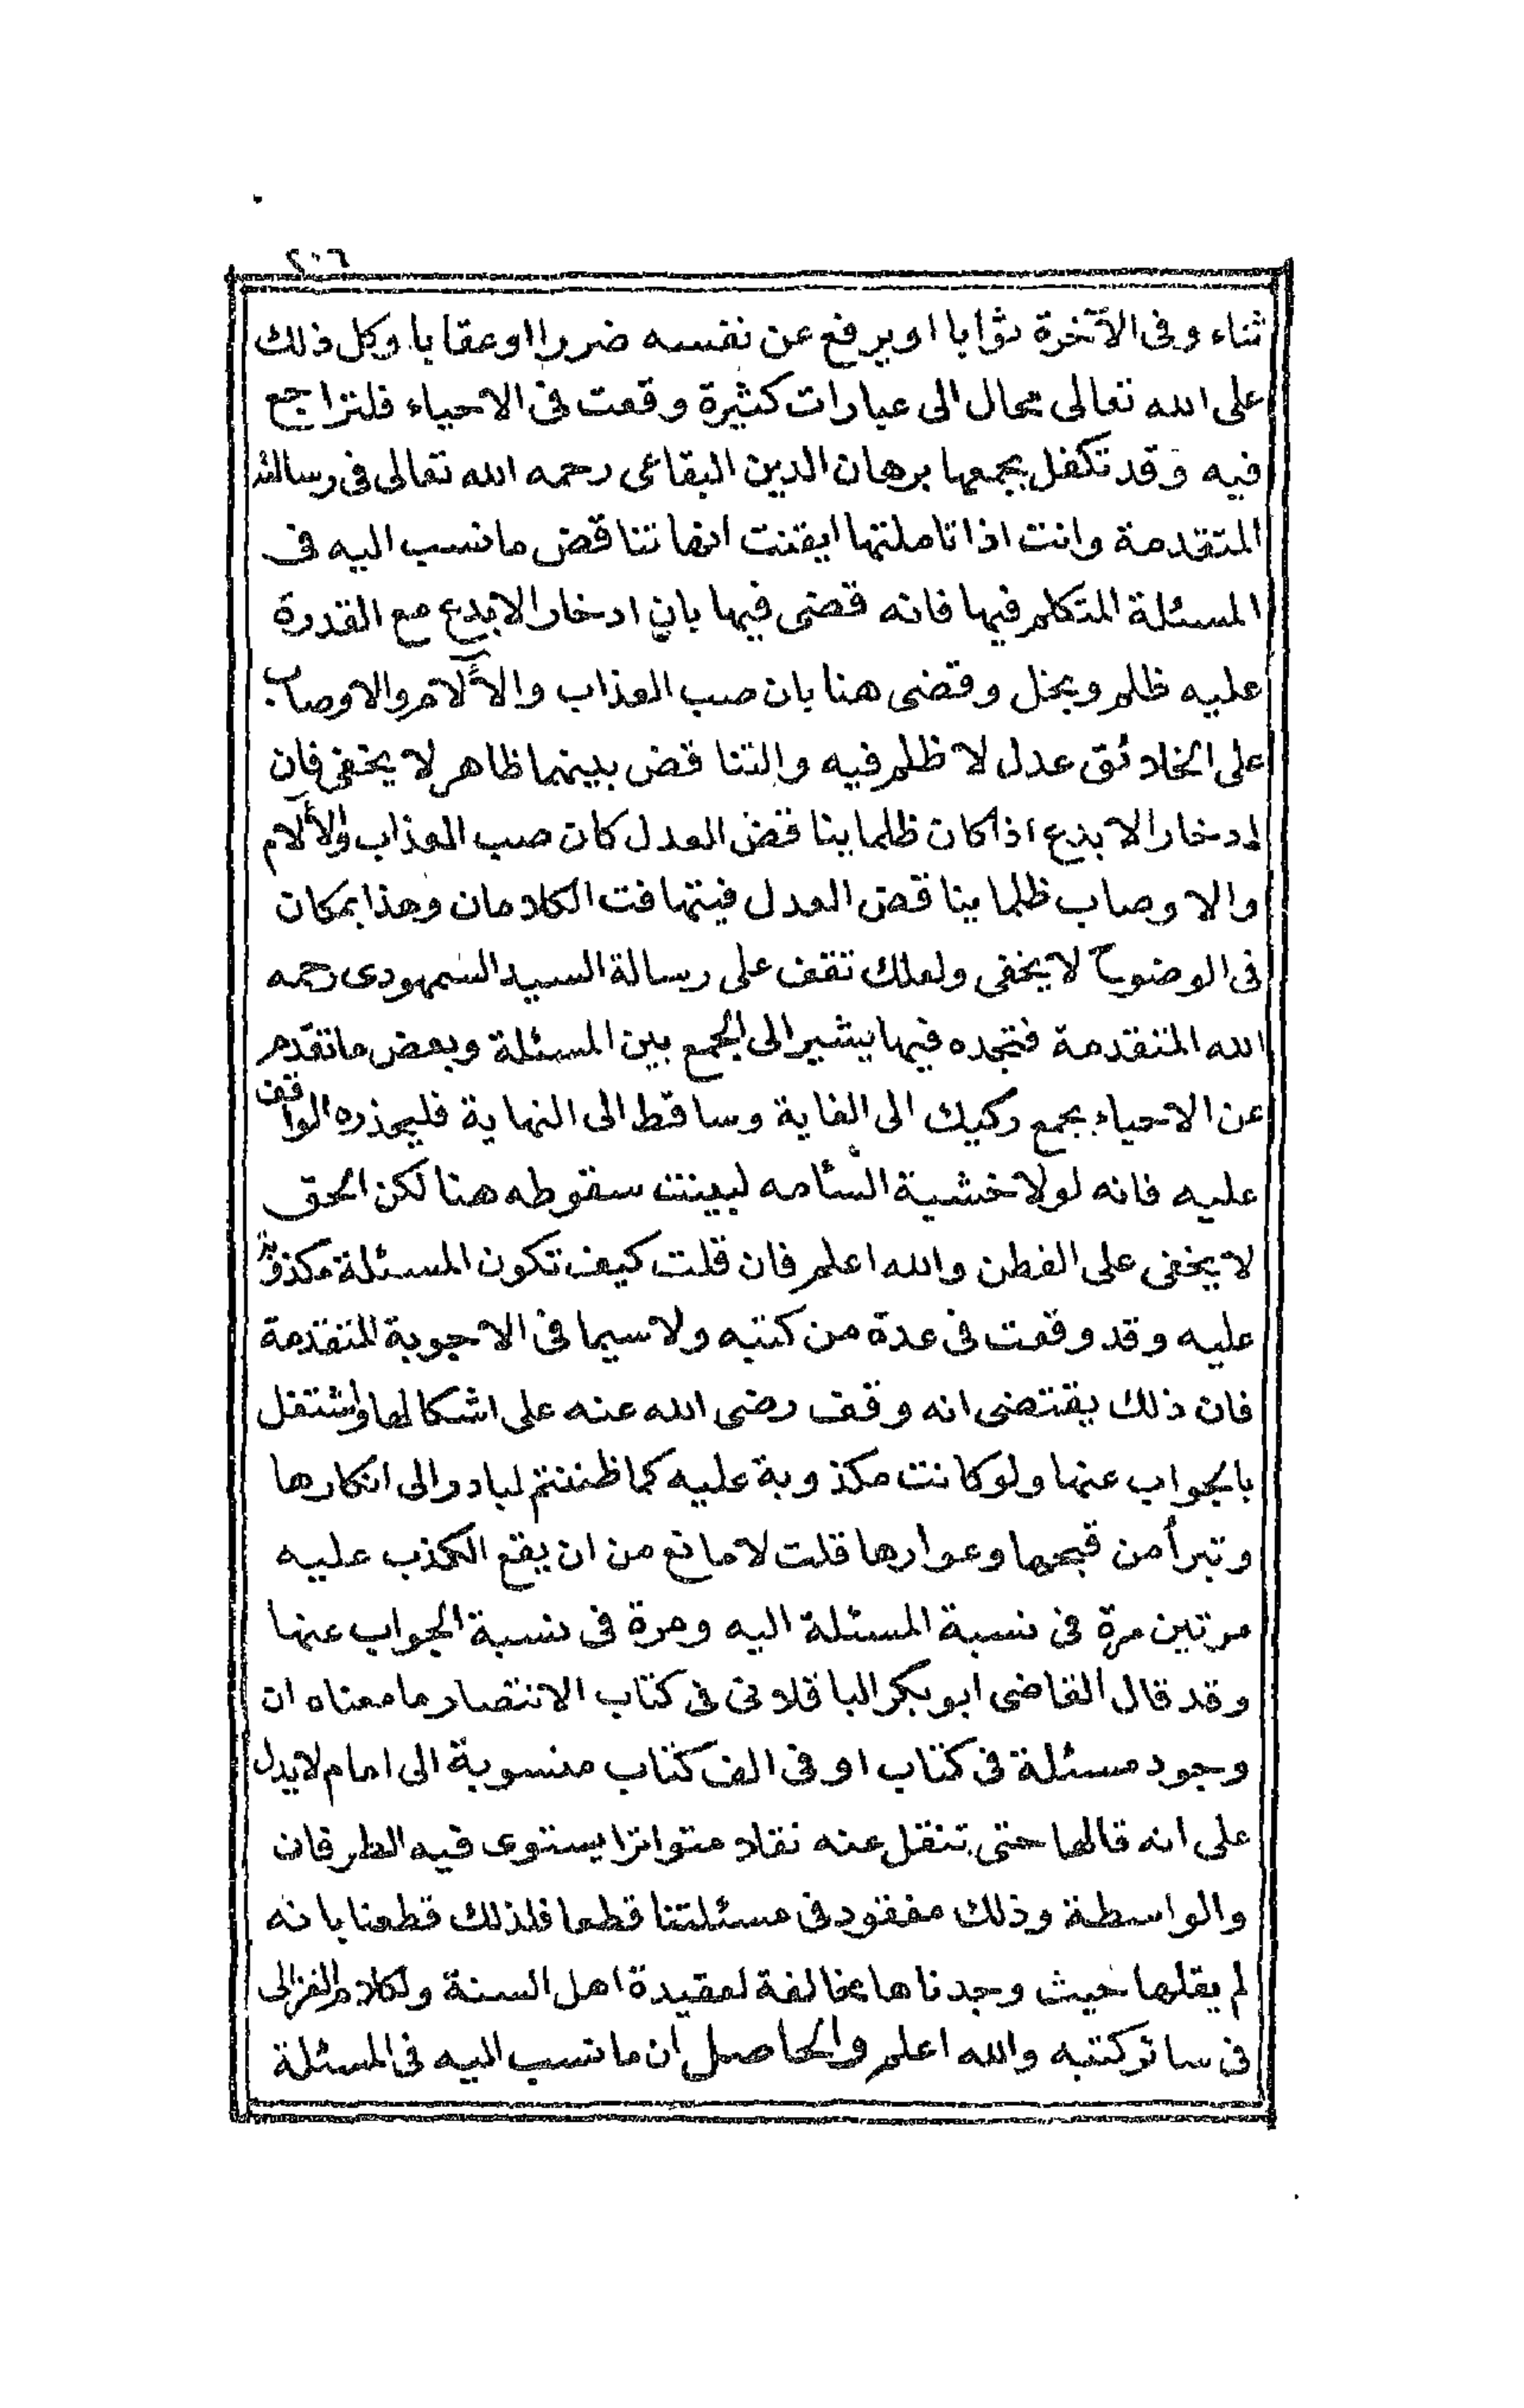 ٢٠٦
ثناء وفى الآخرة ثوابا او يرفع عن نفسه ضررا او عقابا وكل ذلك
على الله تعالى محال الى عبارات كثيرة وقعت فى الاحياء فلتراجع
فيه وقد تكفل بجمعها برهان الدين البقاعى رحمه الله تعالى فى رسالته
المتقدمة وانت اذا تاملتها ايقنت انها تناقض ما نسب اليه فى
المسئلة المتكلم فيها فانه قضى فيها بان ادخار الابدع مع القدرة
عليه ظلم وبخل وقضى هنا بان صب العذاب والآلام والاوصاب
على الخلائق عدل لا ظلم فيه والتناقض بينهما ظاهر لا يخفى فان
ادخار الابدع اذا كان ظلما يناقض العدل كان صب العذاب والآلام
والاوصاب ظلما يناقض العدل فيتهافت الكلامان وهذا بمكان
فى الوضوح لا يخفى ولعلك تقف على رسالة السيد السمهودى رحمه
الله المتقدمة فتجده فيها يشير الى الجمع بين المسئلة وبعض ما تقدم
عن الاحياء بجمع ركيك الى الغاية وساقط الى النهاية فليحذره الواقف
عليه فانه لولا خشية السٱمه لبينت سقوطه هنا لكن الحق
لا يخفى على الفطن والله اعلم فان قلت كيف تكون المسئلة مكذوبة
عليه وقد وقعت فى عدة من كتبه ولا سيما فى الاجوبة المتقدمة
فان ذلك يقتضى انه وقف رضى الله عنه على اشكالها واشتغل
بالجواب عنها ولو كانت مكذوبة عليه كما ظننتم لبادر الى انكارها
وتبرأ من قبحها وعوارها قلت لا مانع من ان يقع الكذب عليه
مرتين مرة فى نسبة المسئلة اليه ومرة فى نسبة الجواب عنها
وقد قال القاضى ابو بكر الباقلانى فى كتاب الانتصار ما معناه ان
وجود مسئلة فى كتاب او فى الف كتاب منسوبة الى امام لا يدل
على انه قالها حتى تنقل عنه نقلا متواترا يستوى فيه الطرفان
والواسطة وذلك مفقود فى مسئلتنا قطعا فلذلك قطعنا بانه
لم يقلها حيث وجدناها مخالفة لعقيدة اهل السنة ولكلام الغزالى
فى سائر كتبه والله اعلم والحاصل ان ما نسب اليه فى المسئلة